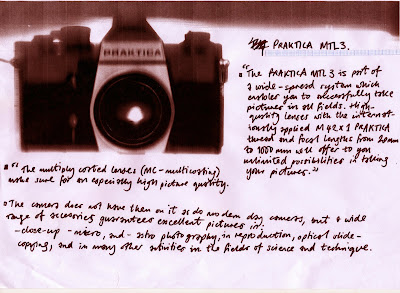 PRAKTICA
PRAKTICA MTL3.
"The PRAKTICA MTL3 is part of
a wide-spread system which
enables you to successfully take
pictures in all fields. High-
quality lenses with the internat-
ionally applied M42x1 PRAKTICA
thread and focal lengths from 20mm
to 1000mm will offer to you
unlimited possibilities in taking
your pictures."
"The multiply coated lenses (MC-multicoating)
make sure for an especially high picture quality.
The camera does not have them on it as do modern day cameras, but a wide
range of accesories guarantees excellent pictures in:
-close-up -micro, and -astro photography, in reproduction, optical slide-
copying, and in many other activities in the fields of science and technique.